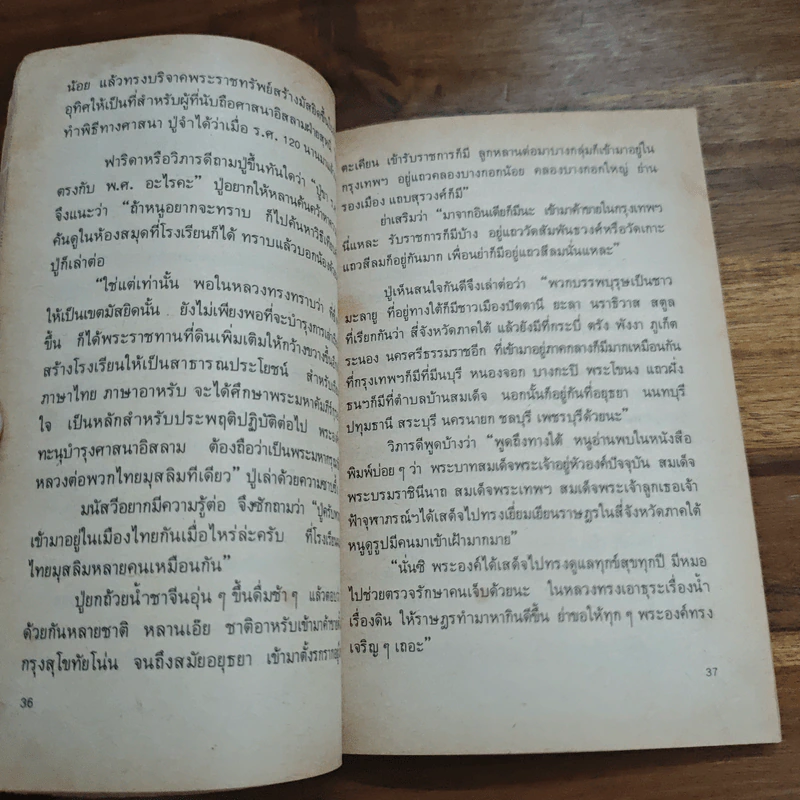 น้อย แล้วทรงบริจาคพระราชทรัพย์สร้างมัสยิดขึ้น
อุทิศให้เป็นที่สำหรับผู้ที่นับถือศาสนาอิสลามฝ่าย
ทำพิธีทางศาสนา ปู่จำได้ว่าเมื่อ ร.ศ. 120 นานมาแล้ว
ฟาริดาหรือวิภารดีถามปู่ขึ้นทันใดว่า "ปู่ขา
ตรงกับ พ.ศ. อะไรคะ" ปู่อยากให้หลานค้นคว้า
จึงแนะว่า "ถ้าหนูอยากจะทราบ ก็ไปค้นหาวิธีเทียบ
ค้นดูในห้องสมุดที่โรงเรียนก็ได้ ทราบแล้วบอกน้อง
ปู่ก็เล่าต่อ
"ใช่แต่เท่านั้น พอในหลวงทรงทราบว่า
ให้เป็นเขตมัสยิดนั้น ยังไม่เพียงพอที่จะบำรุงการ
ขึ้น ก็ได้พระราชทานที่ดินเพิ่มเติมให้กว้างขวางขึ้น
สร้างโรงเรียนให้เป็นสาธารณประโยชน์ สำหรับ
ภาษาไทย ภาษาอาหรับ จะได้ศึกษาพระมหาคัมภีร์
ใจ เป็นหลักสำหรับประพฤติปฏิบัติต่อไป
ทะนุบำรุงศาสนาอิสลาม ต้องถือว่าเป็นพระมหากรุณา
หลวงต่อพวกไทยมุสลิมทีเดียว" ปู่เล่าด้วยความซาบซึ้ง
มนัสวีอยากมีความรู้ต่อ จึงซักถามว่า "ปู่ครับ
เข้ามาอยู่ในเมืองไทยกันเมื่อไหร่ล่ะครับ ที่โรงเรียน
ไทยมุสลิมหลายคนเหมือนกัน"
ปู่ยกถ้วยน้ำชาจีนอุ่น ๆ ขึ้นดื่มช้า ๆ แล้วตอบ
ด้วยกันหลายชาติ หลานเอ๊ย ชาติอาหรับเข้ามาค้าขาย
กรุงสุโขทัยโน่น จนถึงสมัยอยุธยา เข้ามาตั้งรกราก
36
ตะเคียน เข้ารับราชการก็มี ลูกหลานต่อมาบางกลุ่มก็เข้ามาอยู่ใน
กรุงเทพฯ อยู่แถวคลองบางกอกน้อย คลองบางกอกใหญ่ ย่าน
รองเมือง แถบสุรวงค์ก็มี"
ย่าเสริมว่า "มาจากอินเดียก็มีนะ เข้ามาค้าขายในกรุงเทพฯ
นี่แหละ รับราชการก็มีบ้าง อยู่แถววัดสัมพันธวงศ์หรือวัดเกาะ
แถวสีลมก็อยู่กันมาก เพื่อนย่าก็มีอยู่แถวสีลมนั่นแหละ"
ปู่เห็นสนใจกันดีจึงเล่าต่อว่า "พวกบรรพบุรุษเป็นชาว
มะลายู ที่อยู่ทางใต้ก็มีชาวเมืองปัตตานี ยะลา นราธิวาส สตูล
ที่เรียกกันว่า สี่จังหวัดภาคใต้ แล้วยังมีที่กระบี่ ตรัง พังงา ภูเก็ต
ระนอง นครศรีธรรมราชอีก ที่เข้ามาอยู่ภาคกลางก็มีมากเหมือนกัน
ที่กรุงเทพฯก็มีที่มีนบุรี หนองจอก บางกะปิ พระโขนง แถวฝั่ง
ธนฯก็มีที่ตำบลบ้านสมเด็จ นอกนั้นก็อยู่กันที่อยุธยา นนทบุรี
ปทุมธานี สระบุรี นครนายก ชลบุรี เพชรบุรีด้วยนะ"
วิภารดีพูดบ้างว่า "พูดถึงทางใต้ หนูอ่านพบในหนังสือ
พิมพ์บ่อย ๆ ว่า พระบาทสมเด็จพระเจ้าอยู่หัวองค์ปัจจุบัน สมเด็จ
พระบรมราชินีนาถ สมเด็จพระเทพฯ สมเด็จพระเจ้าลูกเธอเจ้า
ฟ้าจุฬาภรณ์ฯได้เสด็จไปทรงเยี่ยมเยียนราษฎรในสี่จังหวัดภาคใต้
หนูดูรูปมีคนมาเข้าเฝ้ามากมาย"
"นั่นซิ พระองค์ได้เสด็จไปทรงดูแลทุกข์สุขทุกปี มีหมอ
ไปช่วยตรวจรักษาคนเจ็บด้วยนะ ในหลวงทรงเอาธุระเรื่องน้ำ
เรื่องดิน ให้ราษฎรทำมาหากินดีขึ้น ย่าขอให้ทุก ๆ พระองค์ทรง
เจริญ ๆ เถอะ"
37